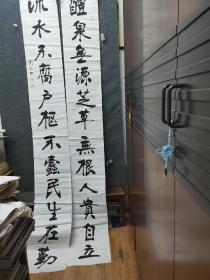 醴泉無源芝草無根人貴自立
流水不腐户樞不蠹民生在勤